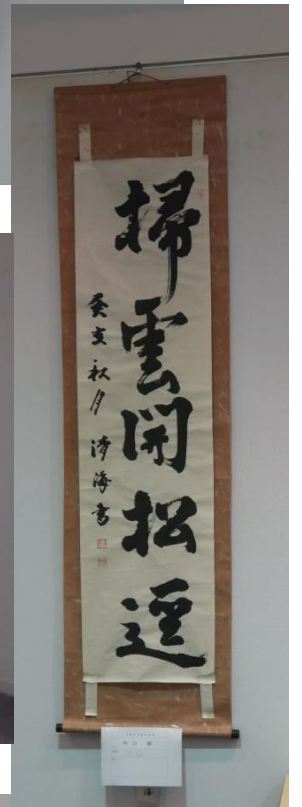 掃雲開松逕
癸亥秋月 清海書